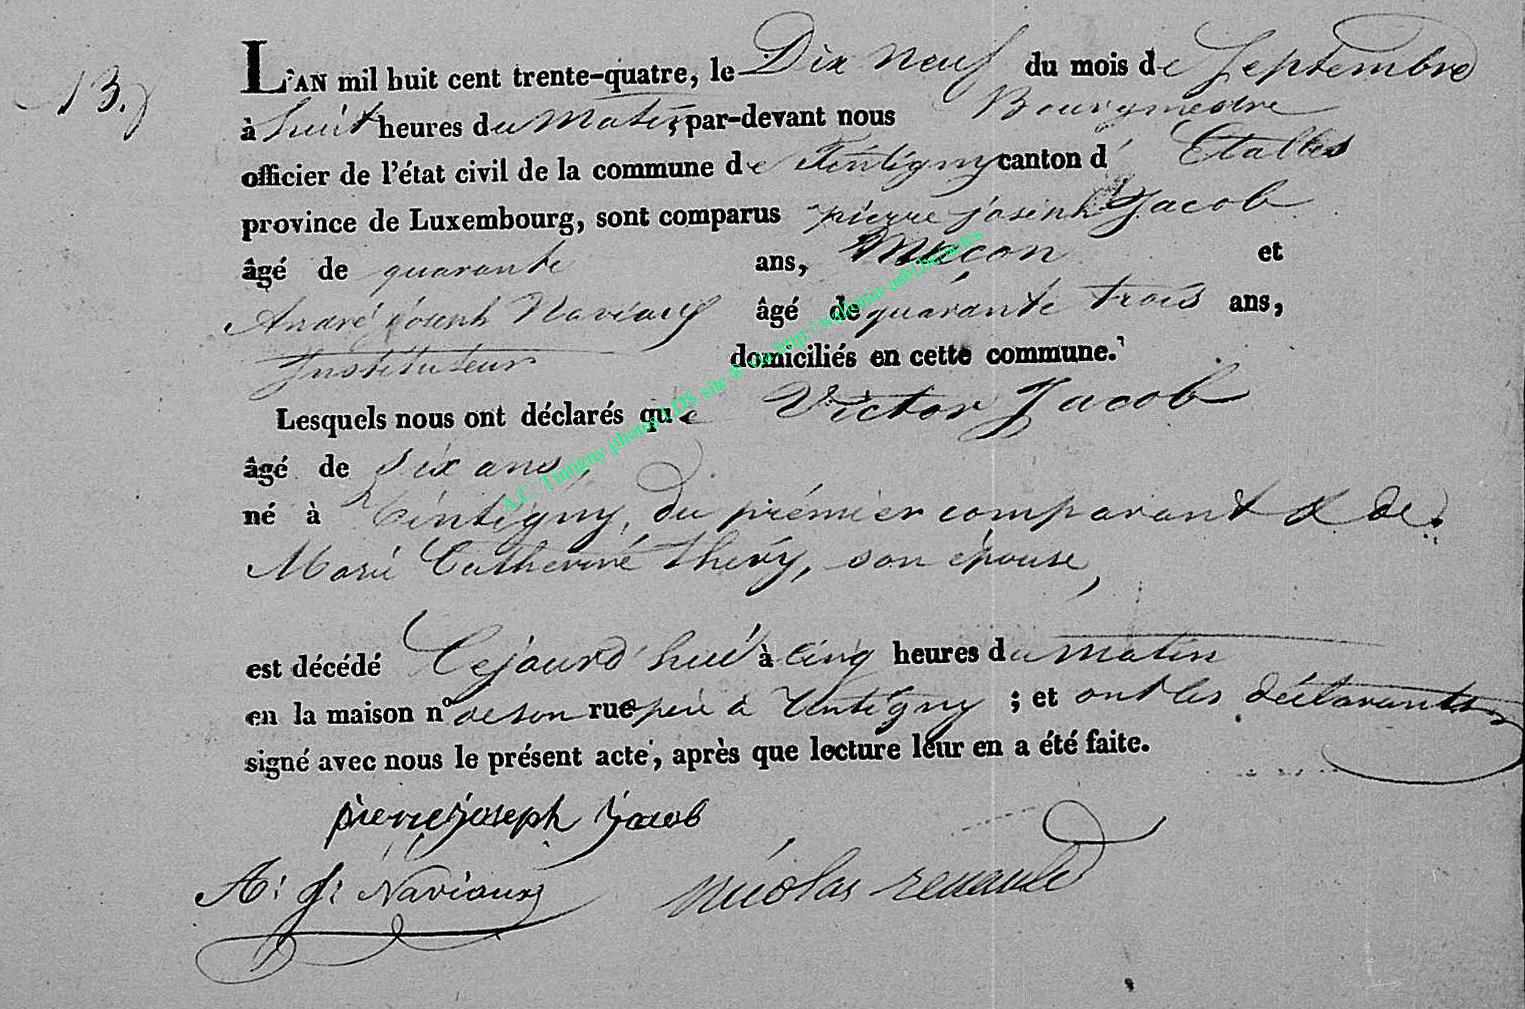 13.
L'AN mil huit cent trente-quatre, le Dix neuf du mois de Septembre
à huit heures du Matin, par-devant nous Bourgmestre
officier de l'état civil de la commune de Tintigny canton d' Etalles
province de Luxembourg, sont comparus pierre joseph Jacob
âgé de quarante ans, Maçon et
André joseph Naviaux âgé de quarante trois ans,
Instituteur domiciliés en cette commune.
Lesquels nous ont déclarés que Victor Jacob
âgé de six ans,
né à Tintigny, du prémier comparant & de
Marie Catherine thiry, son épouse,
est décédé Cejourd'hui à cinq heures du matin
en la maison n° de son rue pere à Tintigny ; et ont les déclarants
signé avec nous le présent acte, après que lecture leur en a été faite.
pierre joseph Jacob
A: J: Naviaux
Nicolas renauld
A.C. Tintigny photos LDS site & via http://wallonia-asbl.be/actes